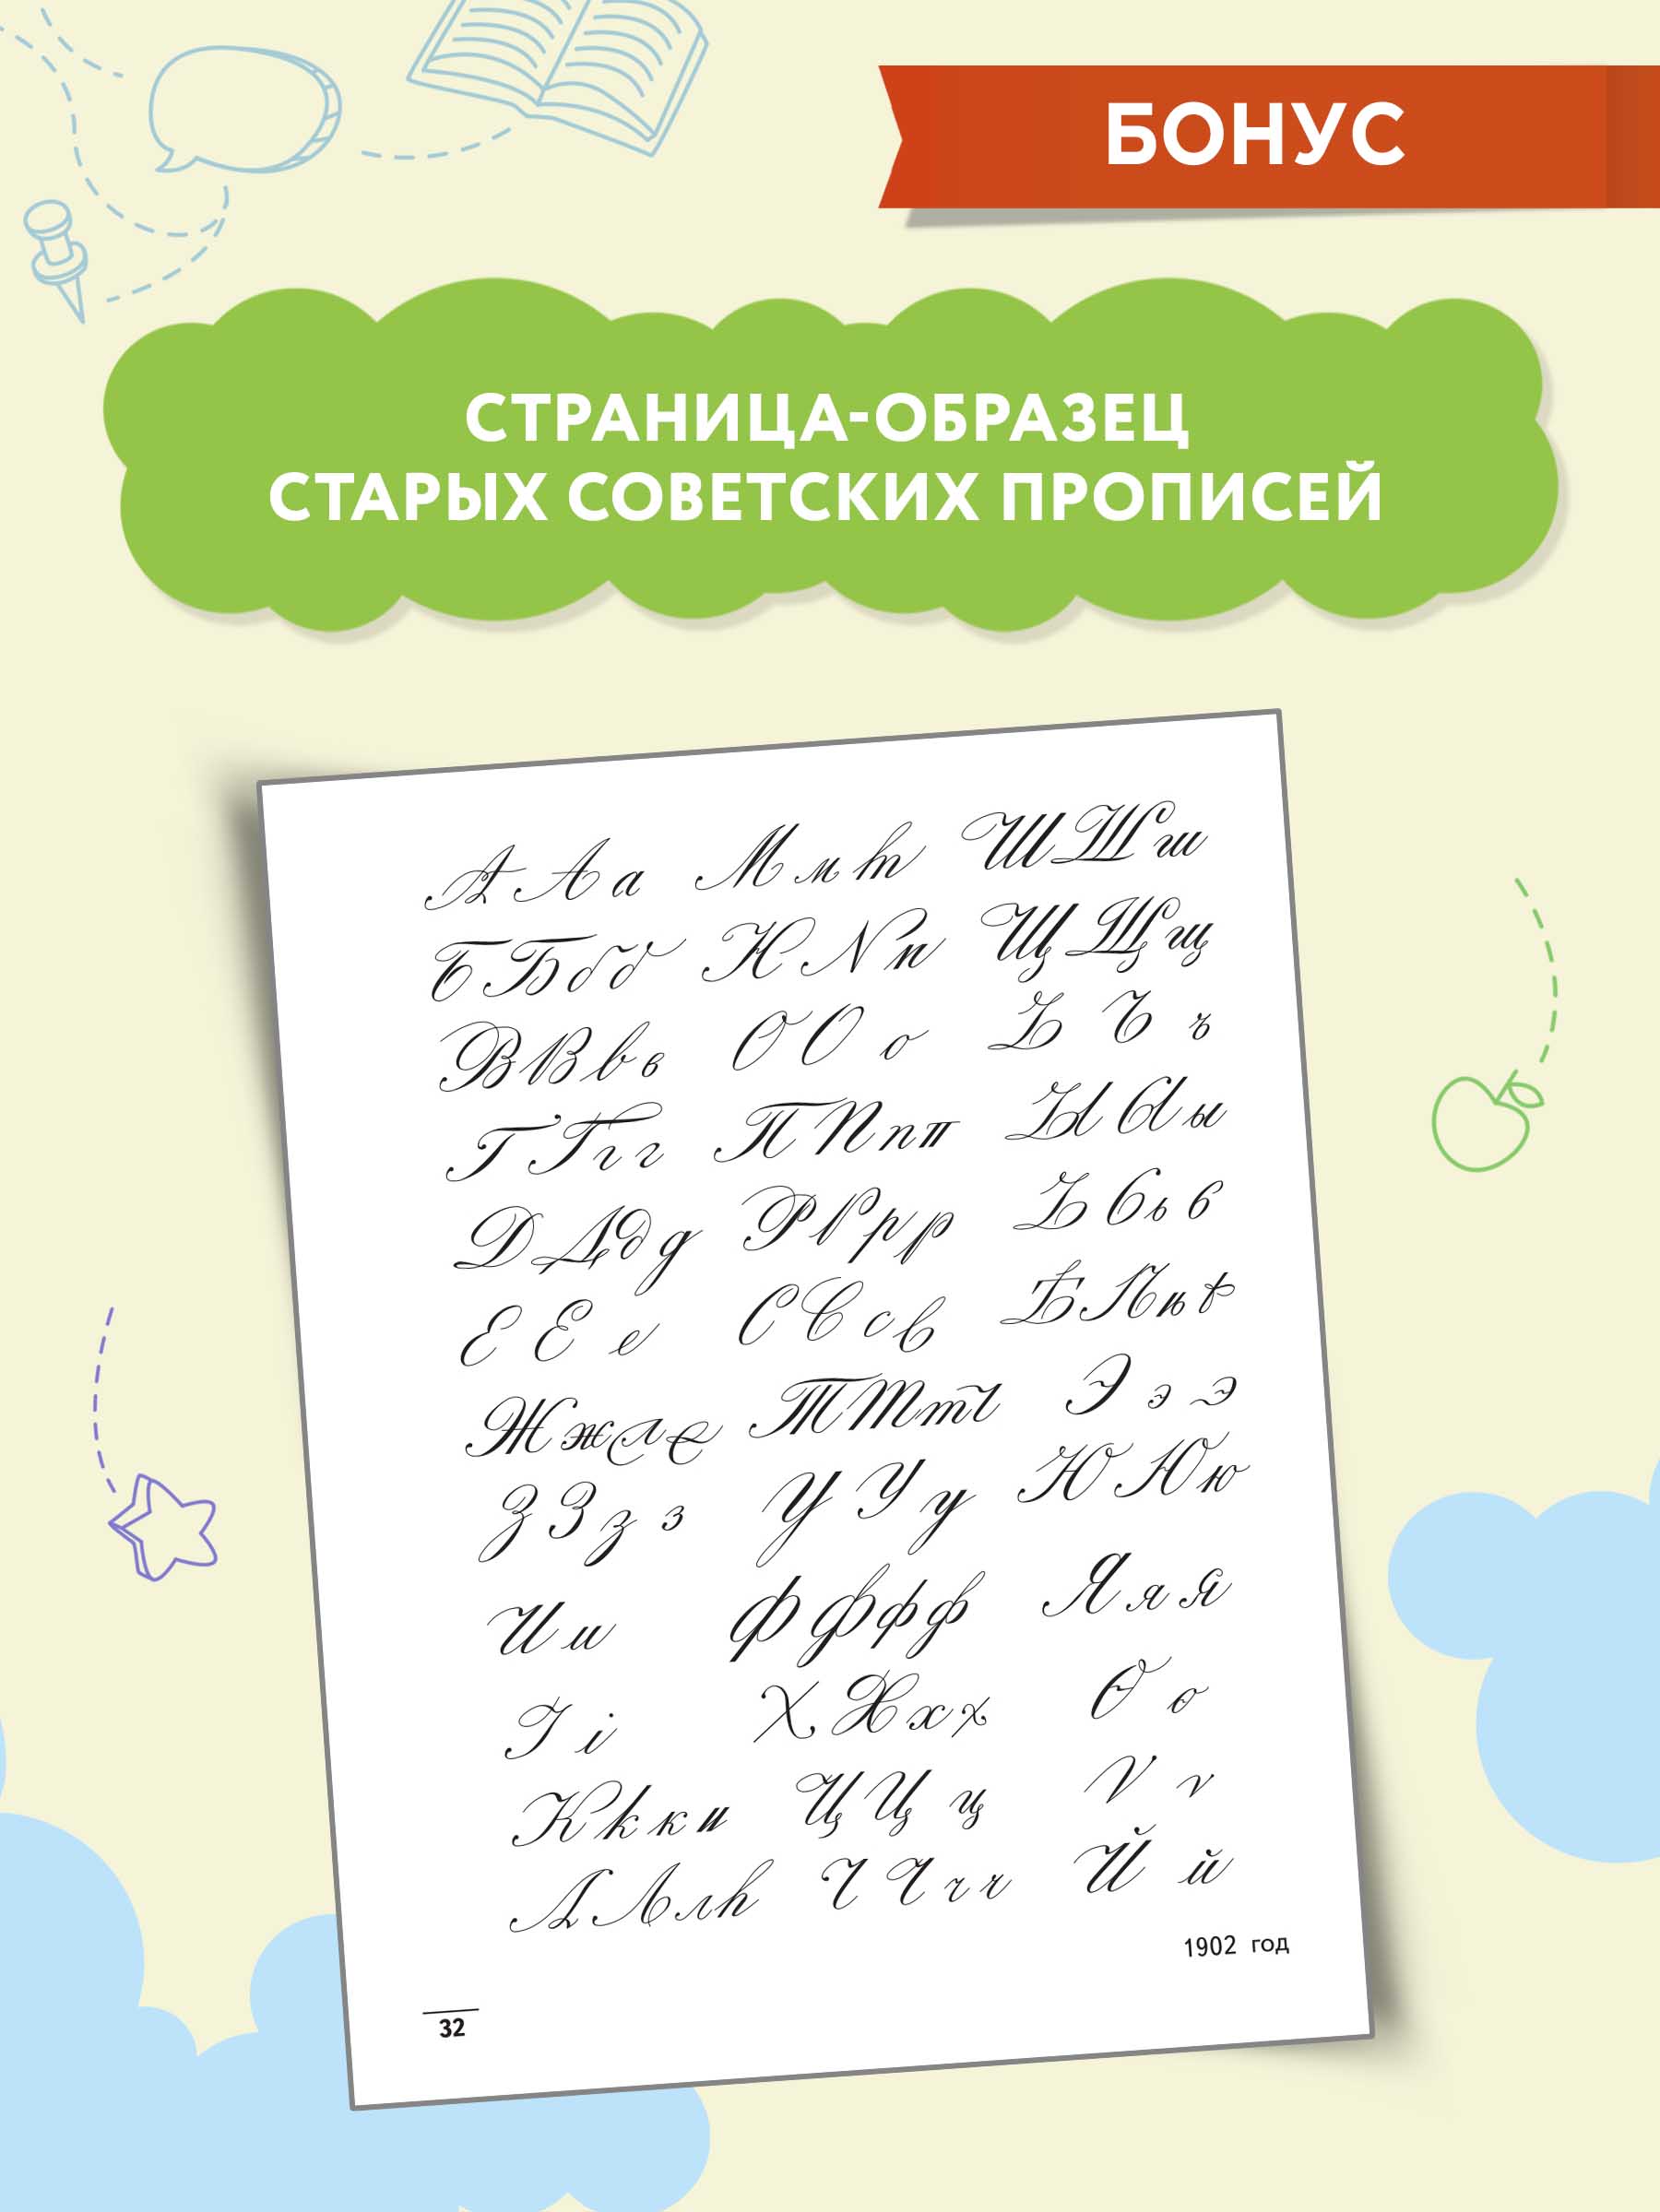 БОНУС
СТРАНИЦА-ОБРАЗЕЦ
СТАРЫХ СОВЕТСКИХ ПРОПИСЕЙ
А А а М м т Ш Ш ш
Б Б б б Н N н Щ Щ щ
В В в в О О о Ъ Ъ ъ
Г Г г г П П п п Ы Ы ы
Д Д д д Р Р р р Ь Ь ь ь
Е Е е С С с с Ѣ Ѣ ѣ ѣ
Ж ж Т Т т Э э э
З З з з У У у Ю Ю ю
И и Ф Ф ф ф Я я я
І і Х Х х х Ѳ ѳ
К к к и Ц Ц ц Ѵ ѵ
Л Л л Ч Ч ч ч Й й
1902 год
32